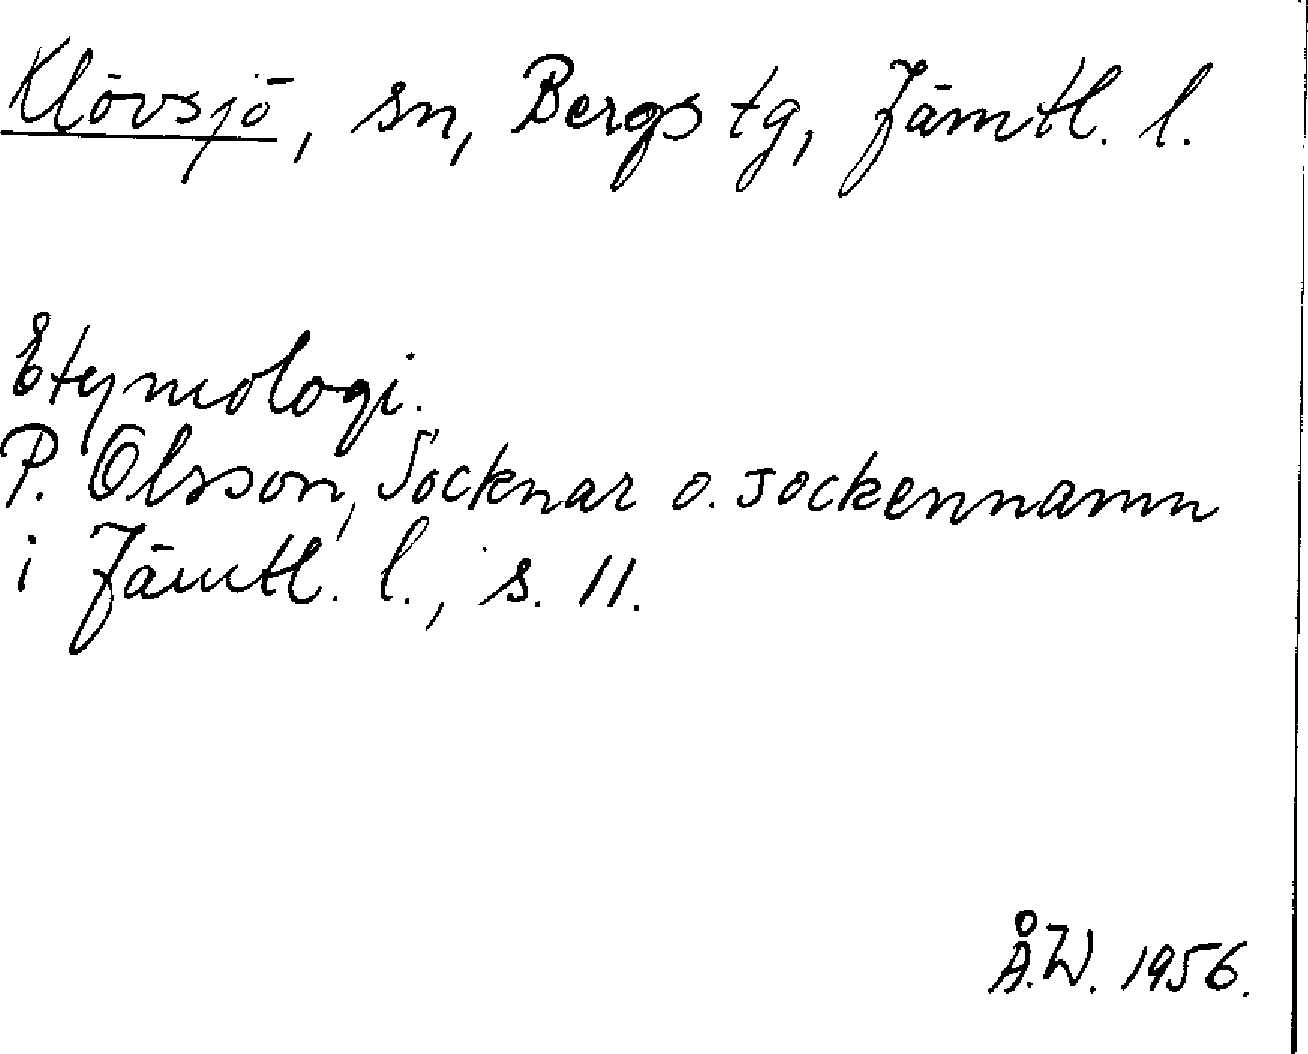 Klövsjö, sn, Bergs tg, Jämtl. l.
Etymologi.
P. Olsson, Socknar o. sockennamn
i Jämtl. l., s. 11.
Å.W. 1956.